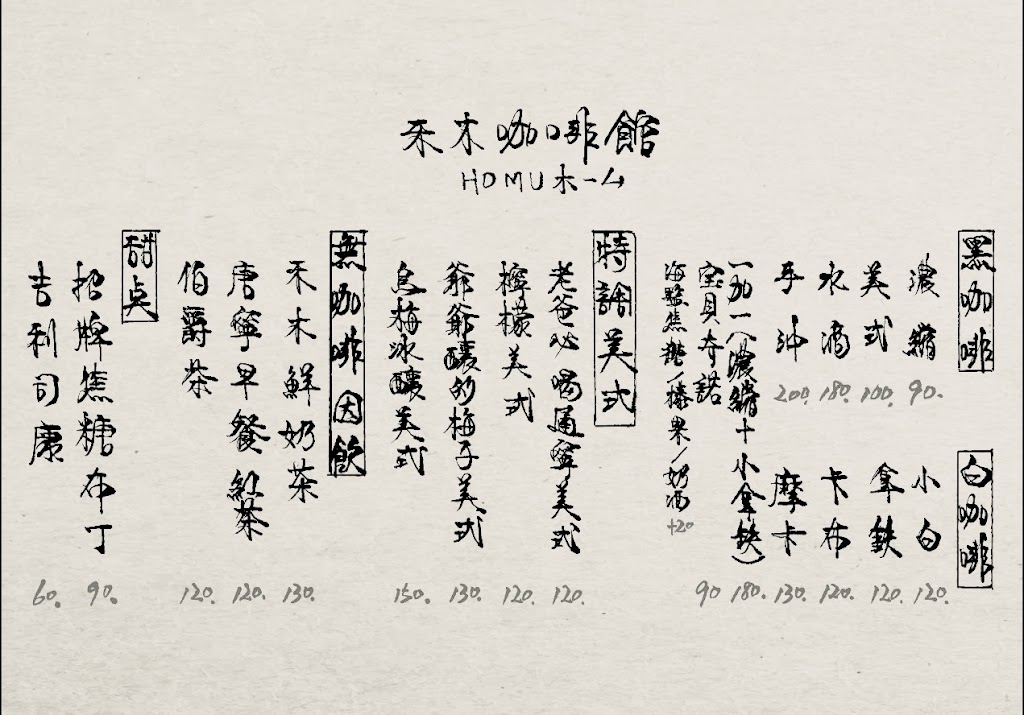 禾木咖啡館
HOMU ホーム
黑咖啡
濃縮 90.
美式 100.
水滴 180.
手沖 200.
白咖啡
小白 120.
拿鉄 120.
卡布 120.
摩卡 130.
一加一(濃縮十小拿鉄) 180.
宝貝奇諾 90
海鹽焦糖/榛果/奶酒 +20
特調美式
老爸必喝通寧美式 120.
檸檬美式 120.
爺爺釀的梅子美式 130.
烏梅冰釀美式 150.
無咖啡因飲
禾木鮮奶茶 130.
唐寧早餐紅茶 120.
伯爵茶 120.
甜点
招牌焦糖布丁 90.
吉利司康 60.